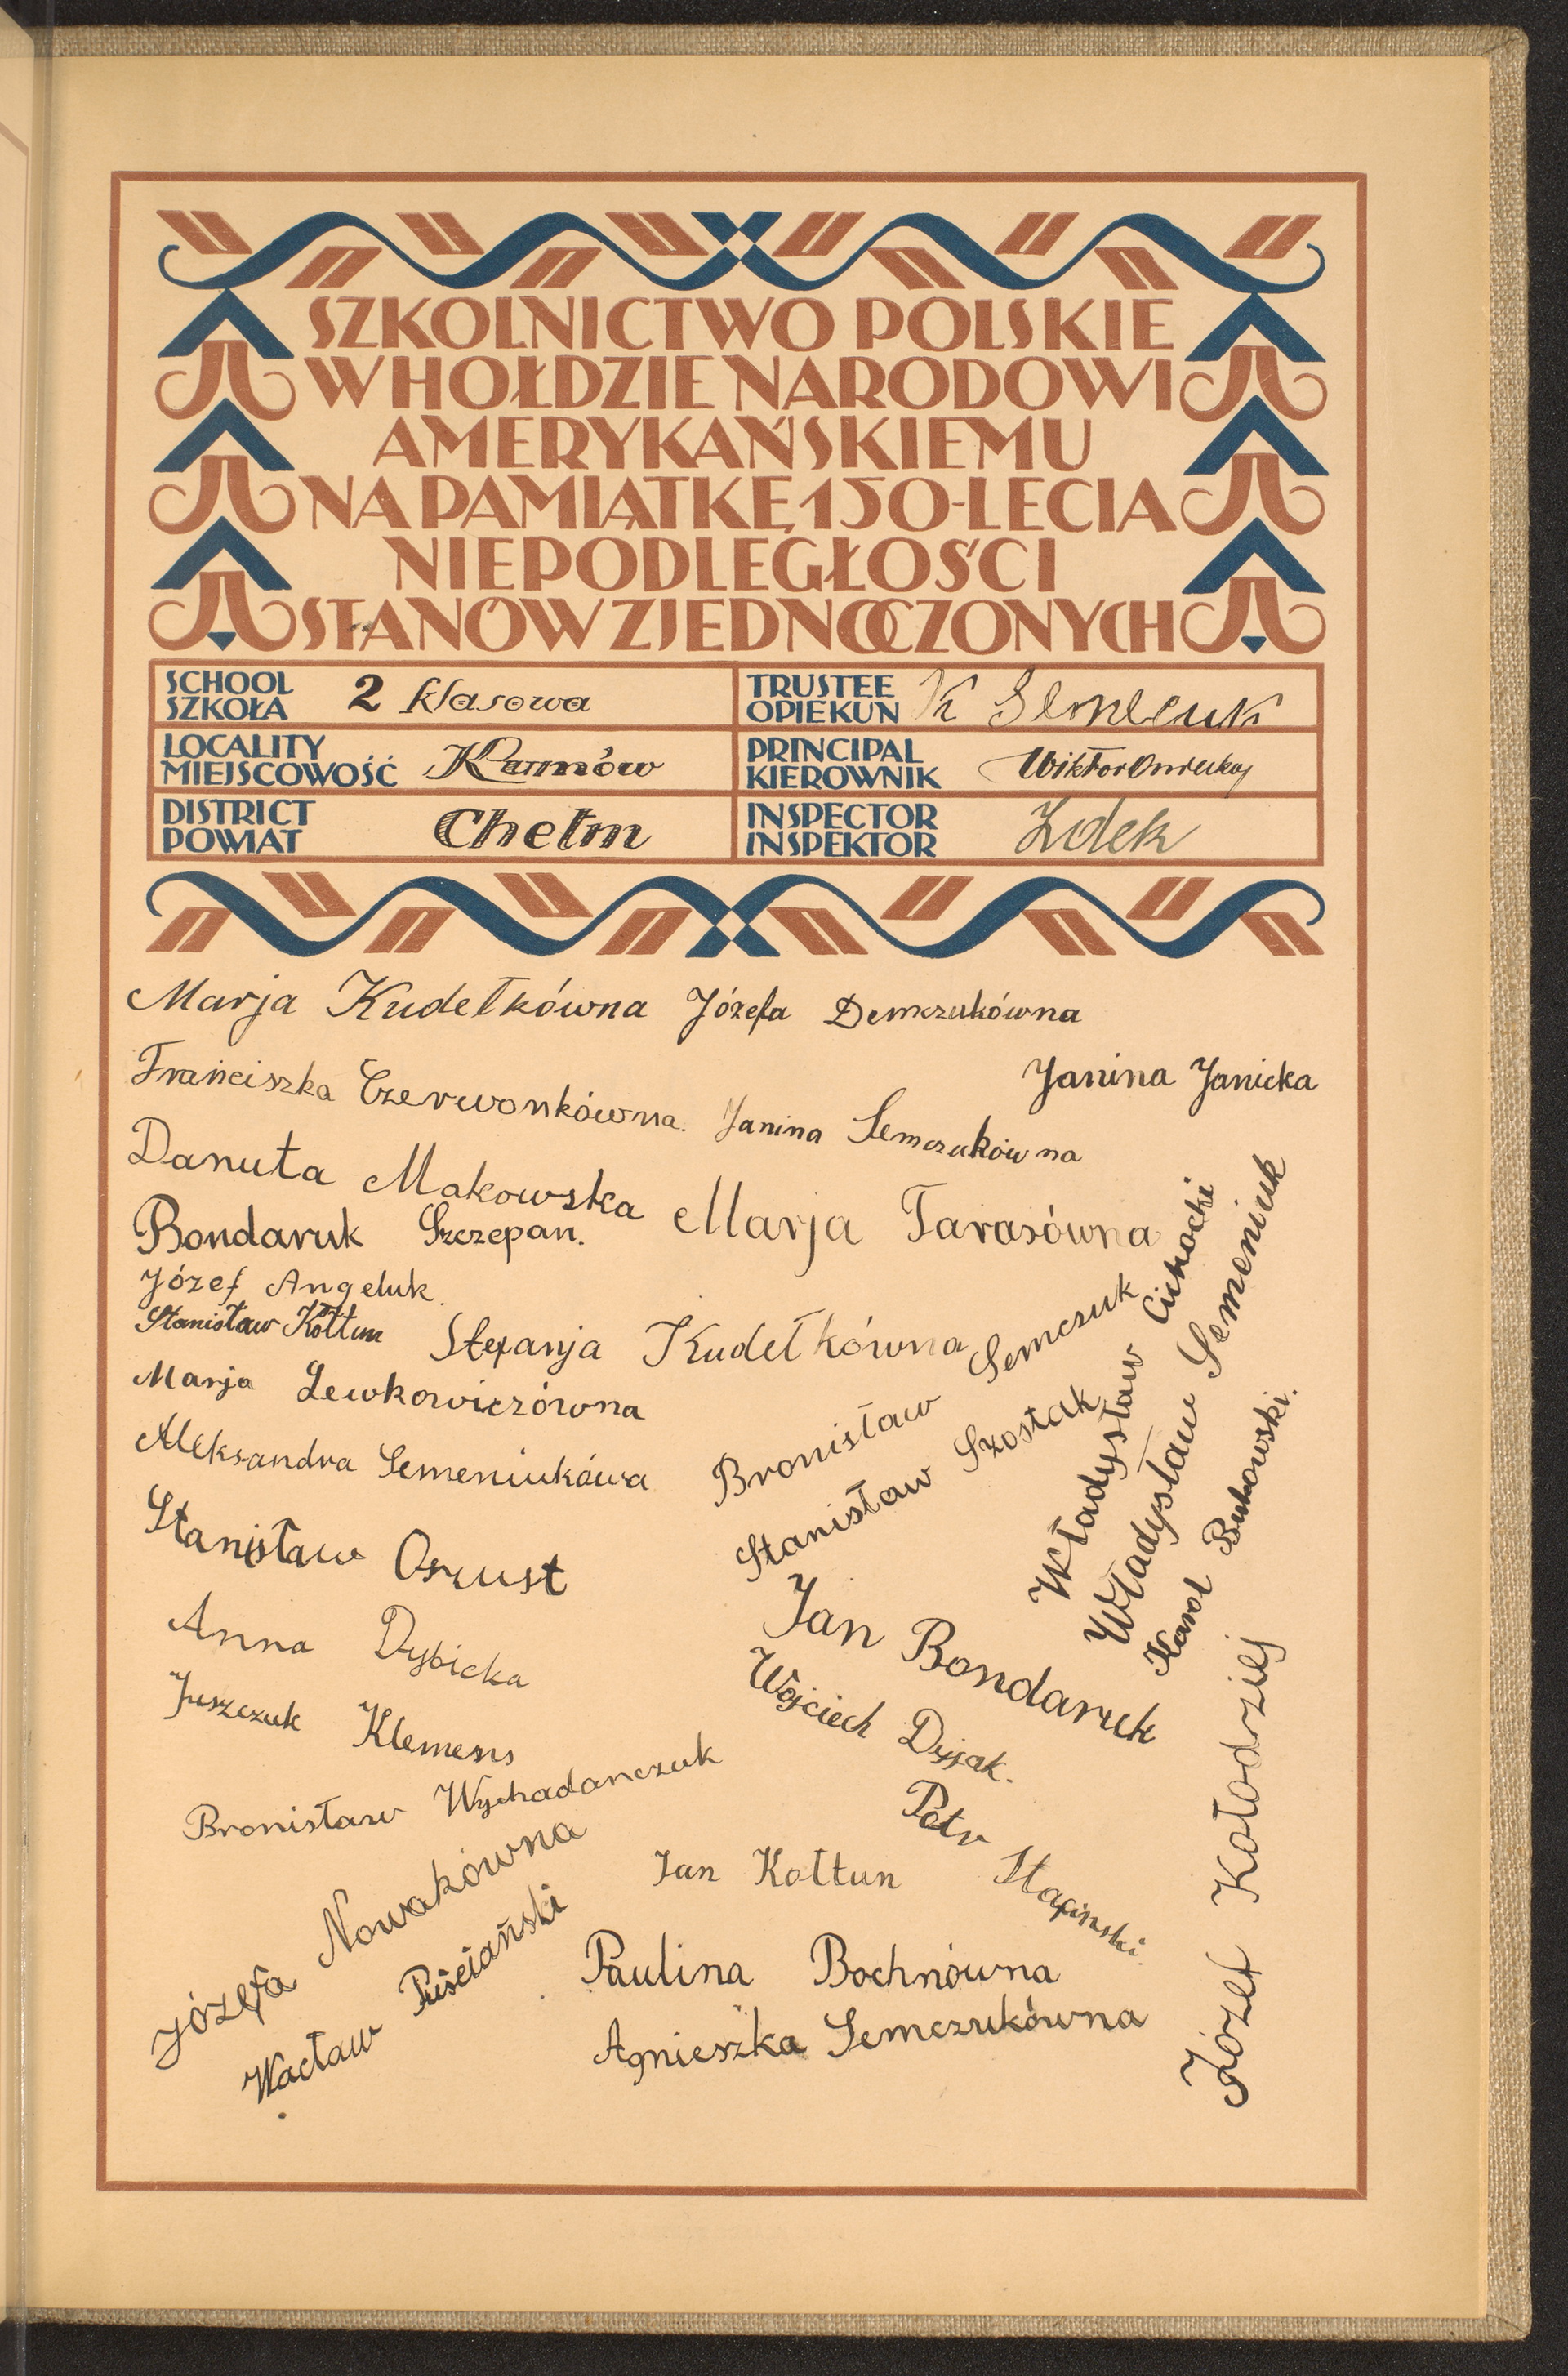 SZKOLNICTWO POLSKIE
W HOŁDZIE NARODOWI
AMERYKAŃSKIEMU
NA PAMIĄTKĘ 150-LECIA
NIEPODLEGŁOŚCI
STANÓW ZJEDNOCZONYCH
SCHOOL
SZKOŁA
2 klasowa
TRUSTEE
OPIEKUN
K
LOCALITY
MIEJSCOWOŚĆ
Kumów
PRINCIPAL
KIEROWNIK
Wiktor
DISTRICT
POWIAT
Chełm
INSPECTOR
INSPEKTOR
Zdek
Marja Kudełkówna Józefa Demczukówna
Janina Janicka
Franciszka Czerwonkówna. Janina Semczukówna
Danuta Makowska Marja Tarasówna
Bondaruk Szczepan.
Józef Angeluk.
Stanisław Kołtun Stefanja Kudełkówna
Marja Lewkowiczówna
Aleksandra Semeniukówa
Bronisław Semczuk
Stanisław Szostak
Władysław Cichocki
Władysław Semeniuk
Karol Bukowski.
Stanisław Oszust
Anna Dybicka
Jan Bondaruk
Juszczuk Klemens
Wojciech Dyjak.
Bronisław Wychadanczuk
Piotr Stafinski.
Jan Kołtun
Józefa Nowakówna
Wacław Puściański
Paulina Bochnówna
Agnieszka Semczukówna
Józef Kołodziej